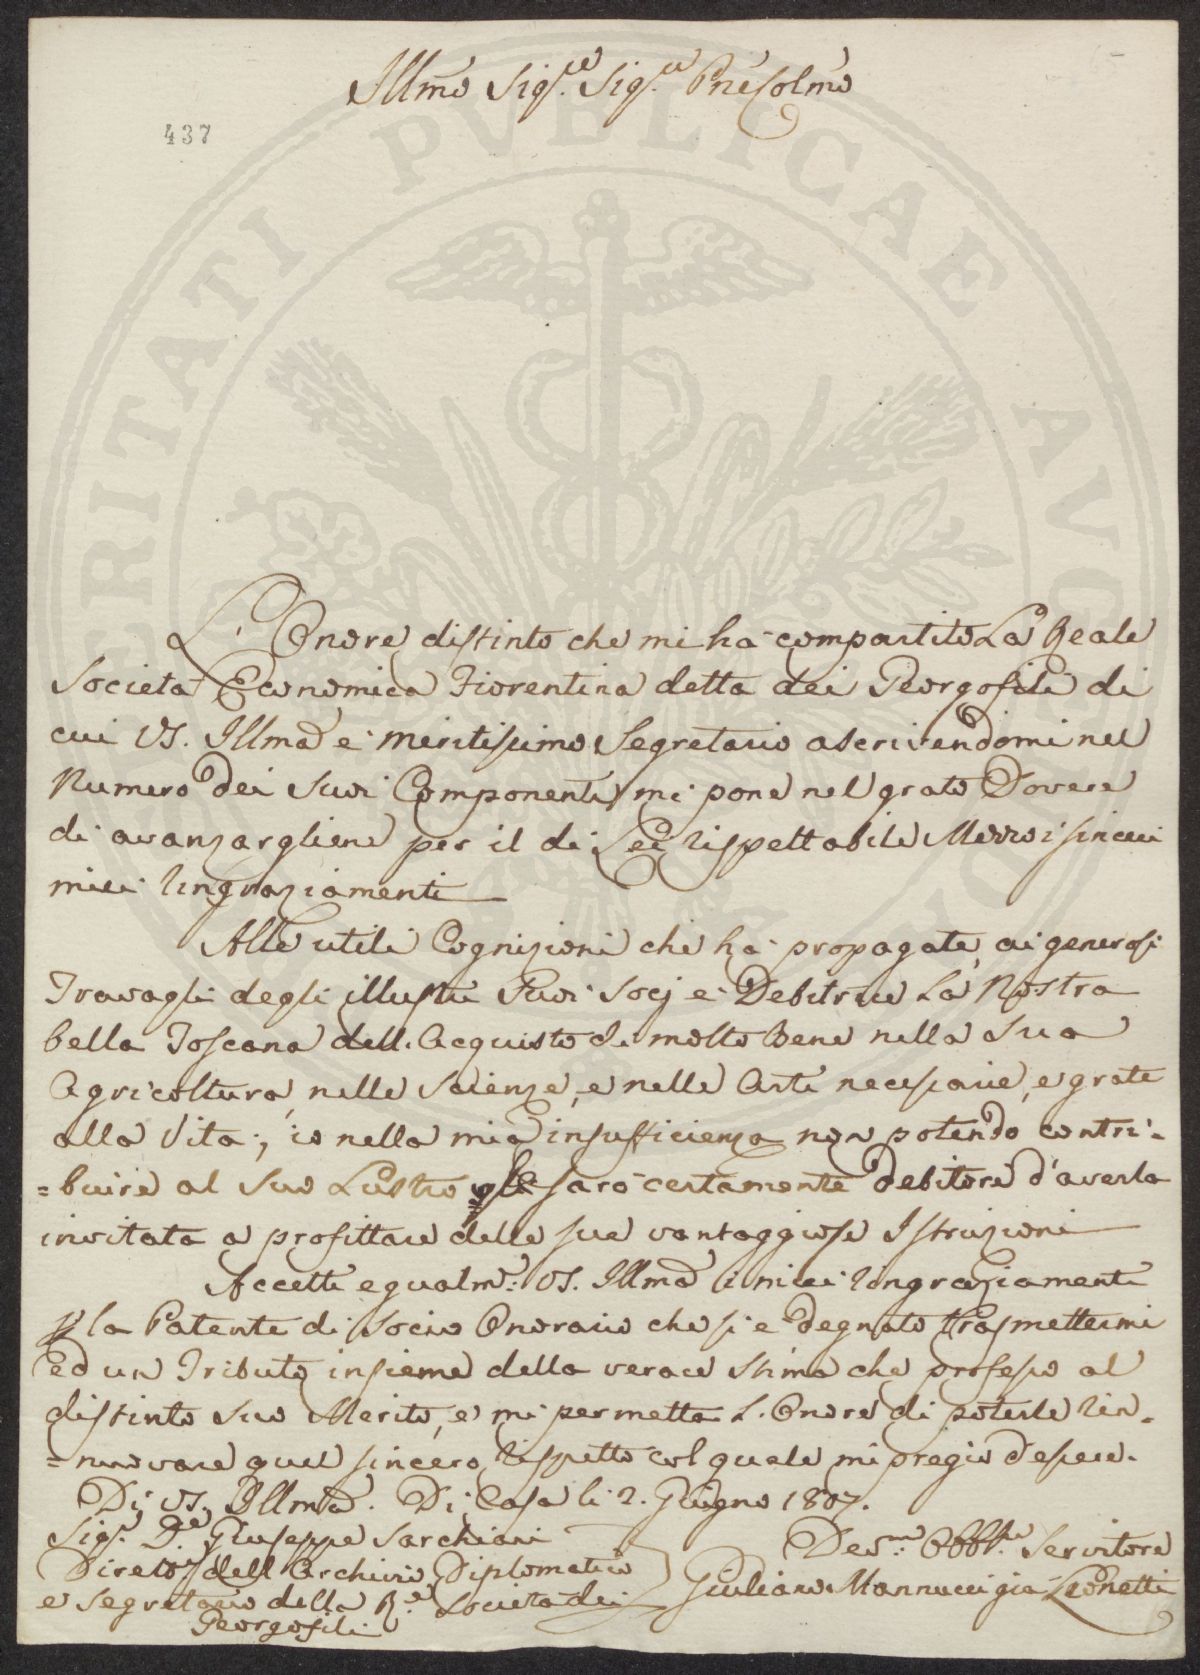 Illmo Sig.re Sig.re Pne Colmo
437
PVBLICAE
L'Onore distinto che mi ha compartito La Reale
Società Economica Fiorentina detta dei Georgofili di
cui VS. Illma è meritissimo Segretario ascrivendomi nel
Numero dei Suoi Componenti, mi pone nel grato Dovere
di avanzargliene per il di Lei rispettabile Mezzo i sinceri
miei ringraziamenti
Alle utili Cognizioni che ha propagate, ai generosi
Travagli degli illustri Suoi Socj è Debitrice La Nostra
bella Toscana dell'Acquisto di molto Bene nella Sua
Agricoltura, nelle Scienze, e nelle Arti necessarie, e grate
alla Vita; io nella mia insufficienza non potendo contri-
=buire al Suo Lustro gle sarò certamente Debitore d'averla
invitata a profittare delle sue vantaggiose Istruzioni
Accetti egualm.e VS. Illma i miei ringraziamenti
p la Patente di Socio Onorario che si è degnato trasmettermi
ed un Tributo insieme della verace Stima che professo al
distinto Suo Merito, e mi permetta L'Onore di poterle rin-
=nuovare quel sincero rispetto col quale mi pregio d'essere.
Di VS. Illma. Di Casa li 2. Giugno 1807.
Sig.r D.re Giuseppe Sarchiani
Diretor dell Archivio Diplomatico
e Segretario della R.e Società dei
Georgofili
Dev.mo Obbl.mo Servitore
Giuliano Mannucci già Leonetti